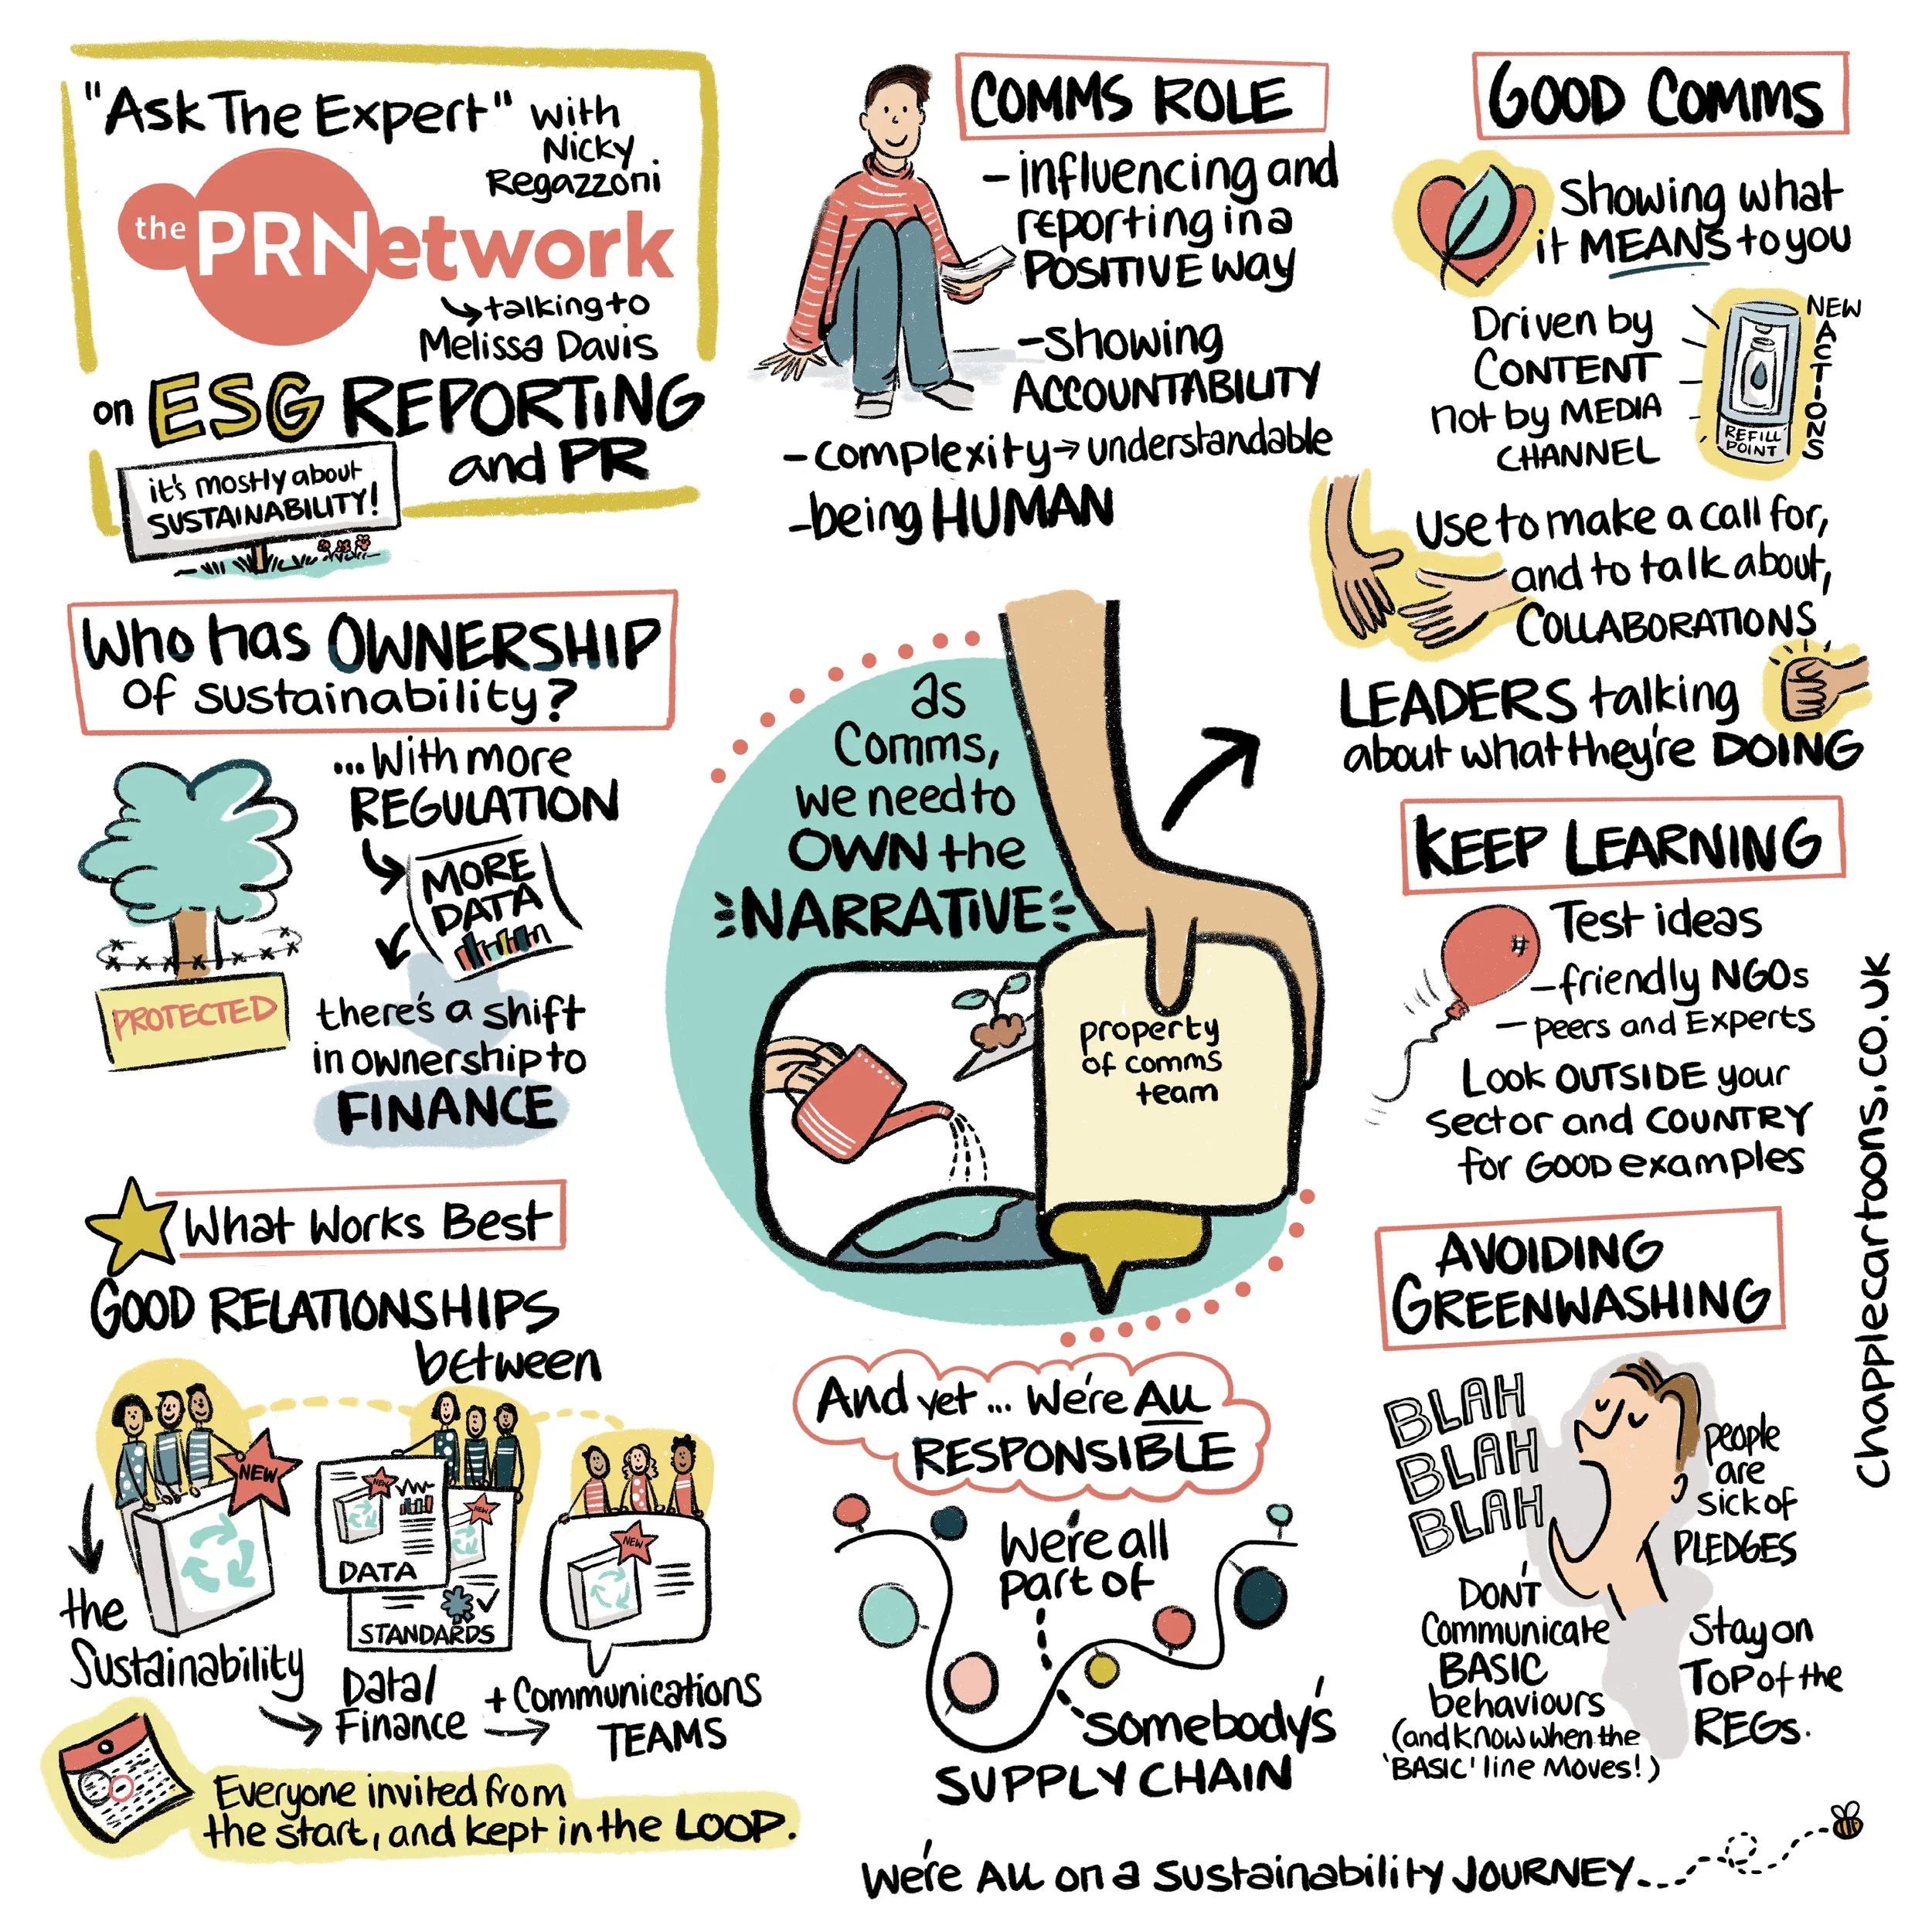 "Ask The Expert" with
Nicky
Regazzoni
the PRNetwork
talking to
Melissa Davis
on ESG REPORTING
and PR
it's mostly about
SUSTAINABILITY!
Who has OWNERSHIP
of sustainability?
...With more
REGULATION
MORE
DATA
PROTECTED
there's a shift
in ownership to
FINANCE
What Works Best
GOOD RELATIONSHIPS
between
NEW
NEW
DATA
NEW
STANDARDS
NEW
the
Sustainability
Data/
Finance
+ Communications
TEAMS
Everyone invited from
the start, and kept in the LOOP.
COMMS ROLE
- influencing and
reporting in a
POSITIVE way
- showing
ACCOUNTABILITY
- complexity → understandable
- being HUMAN
as
Comms,
we need to
OWN the
NARRATIVE
property
of comms
team
And yet ... We're ALL
RESPONSIBLE
We're all
part of
somebody's
SUPPLY CHAIN
We're ALL on a sustainability JOURNEY...
GOOD COMMS
Showing what
it MEANS to you
Driven by
CONTENT
not by MEDIA
CHANNEL
NEW
ACTIONS
REFILL
POINT
Use to make a call for,
and to talk about,
COLLABORATIONS
LEADERS talking
about what they're DOING
KEEP LEARNING
Test ideas
- friendly NGOs
- peers and Experts
Look OUTSIDE your
sector and COUNTRY
for GOOD examples
AVOIDING
GREENWASHING
BLAH
BLAH
BLAH
people
are
sick of
PLEDGES
DON'T
Communicate
BASIC
behaviours
(and know when the
'BASIC' line Moves!)
Stay on
TOP of the
REGS.
chapplecartoons.co.uk